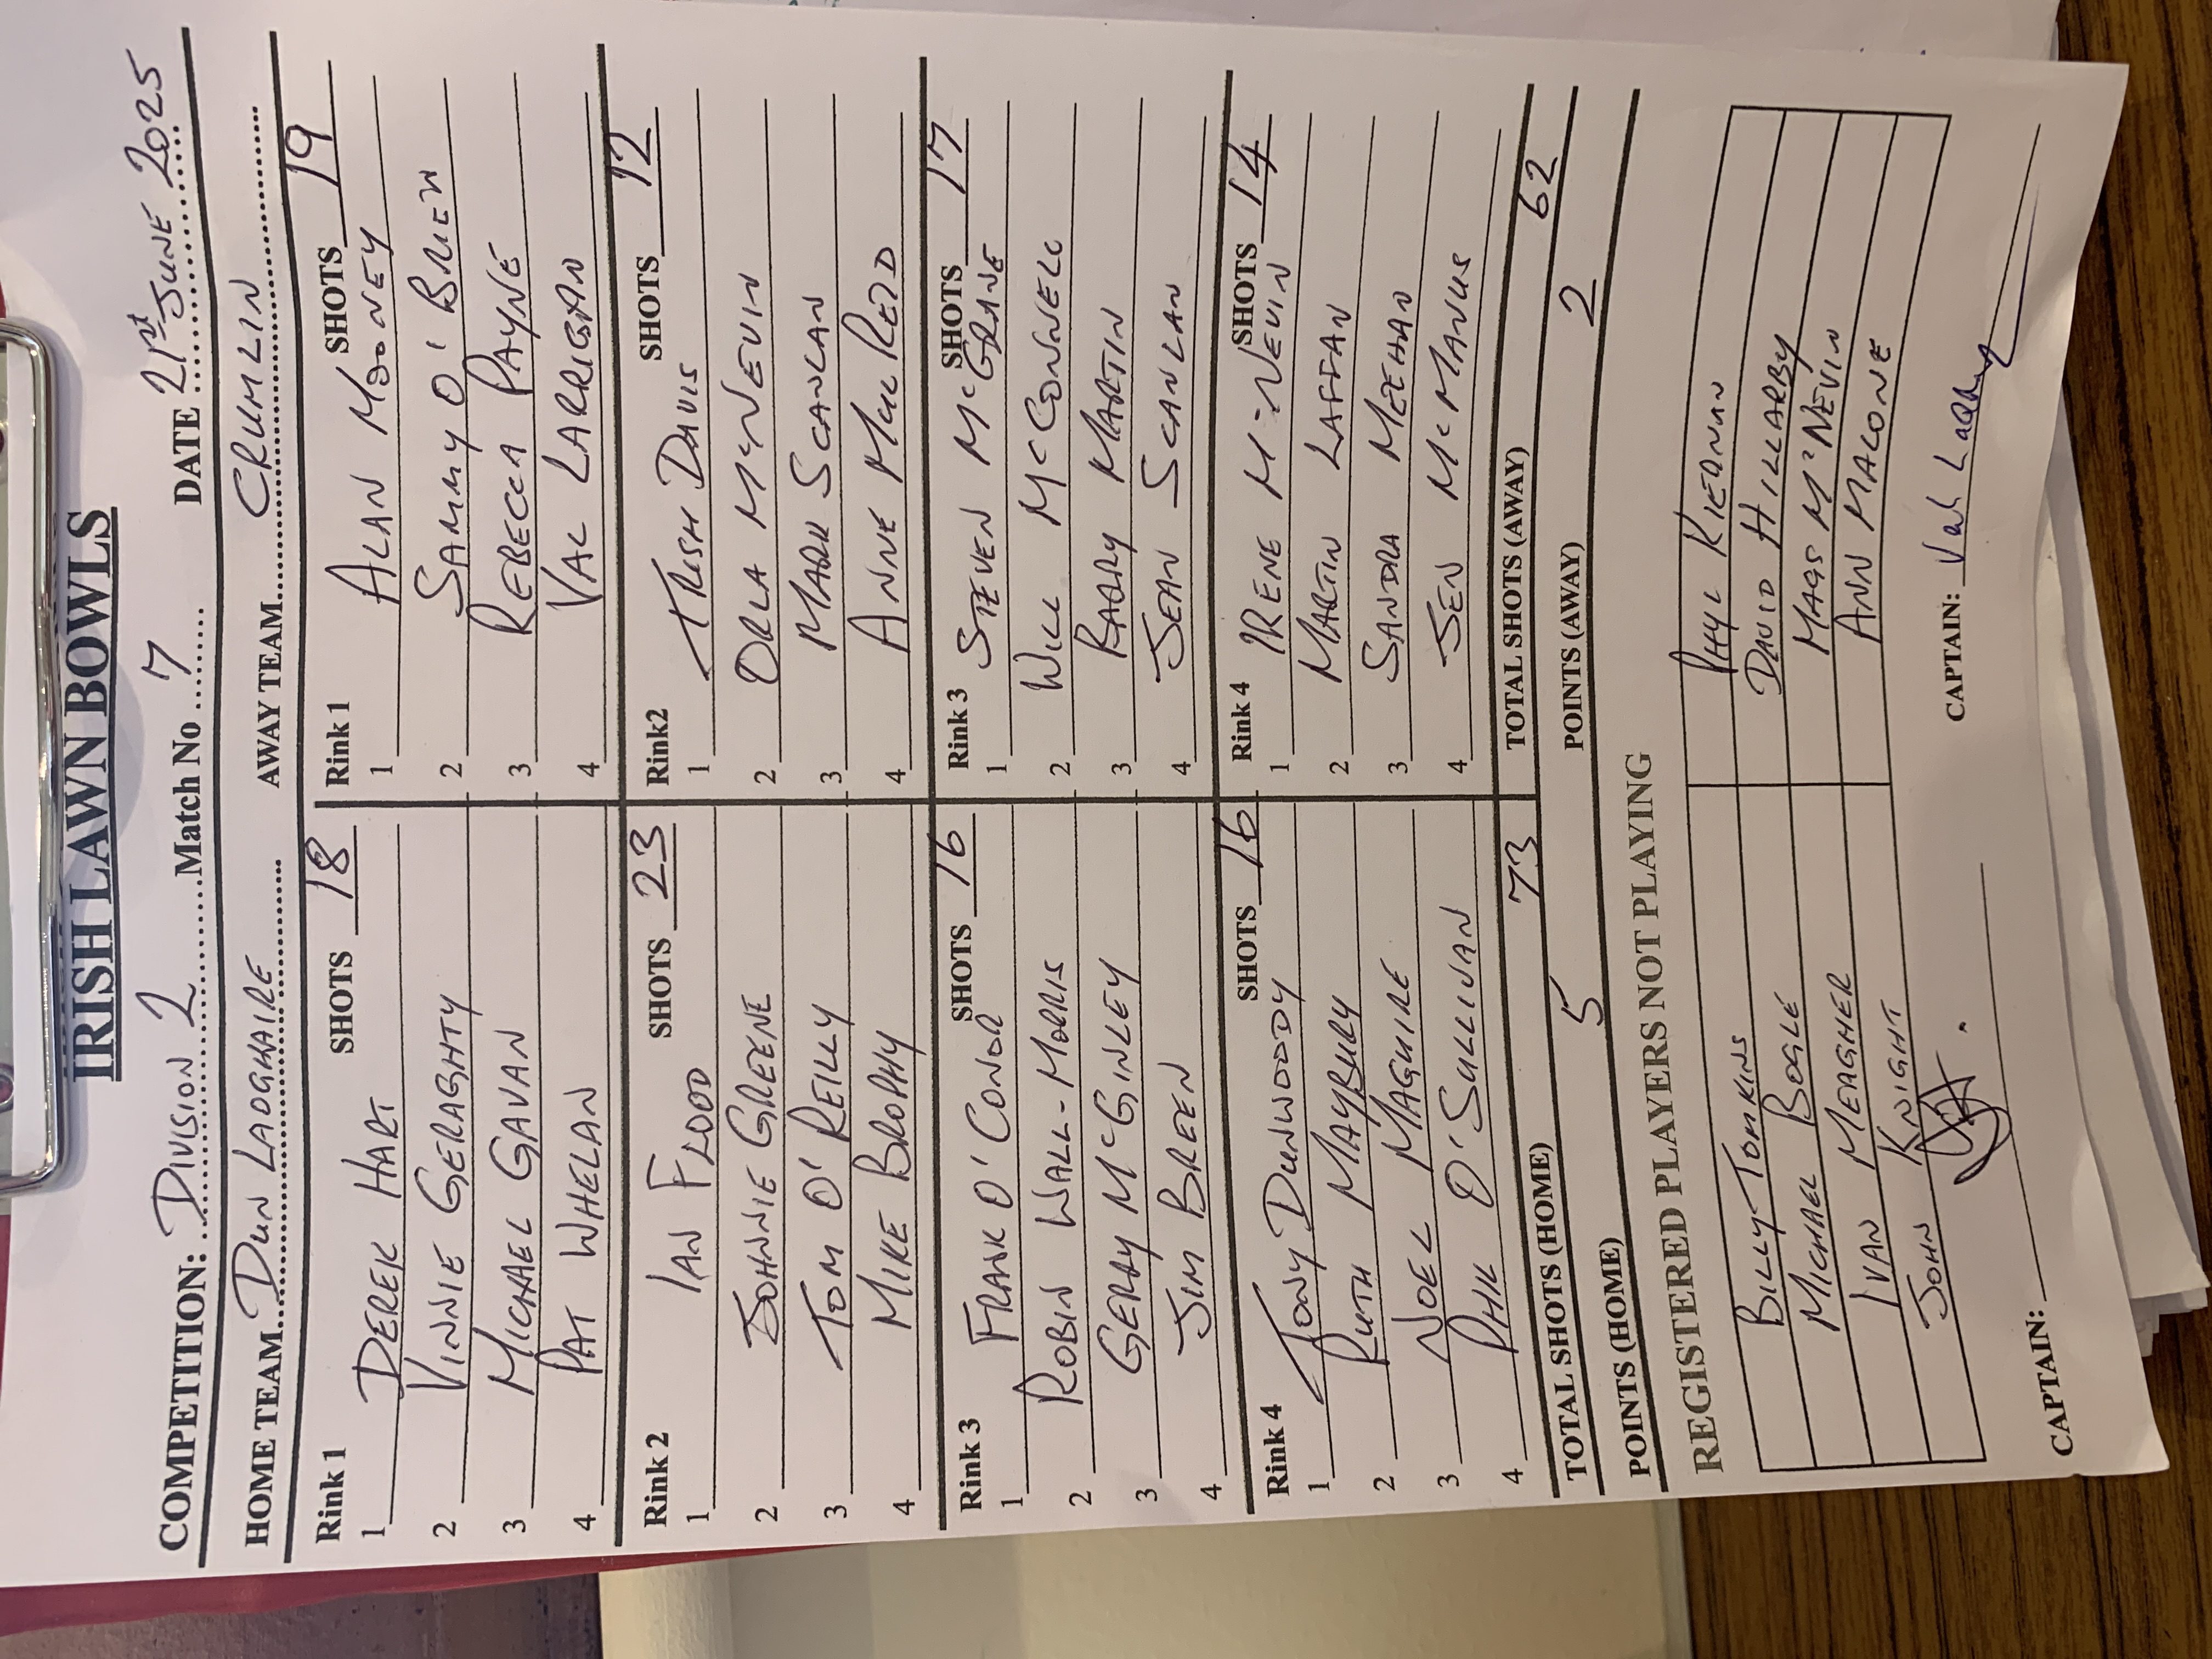 IRISH LAWN BOWLS
COMPETITION: DIVISION 2 Match No 7 DATE 21st JUNE 2025
HOME TEAM DUN LAOGHAIRE AWAY TEAM CRUMLIN
Rink 1 SHOTS 18
1 DEREK HART
2 VINNIE GERAGHTY
3 MICHAEL GAVAN
4 PAT WHELAN
Rink 1 SHOTS 19
1 ALAN MOONEY
2 SAMMY O'BRIEN
3 REBECCA PAYNE
4 VAL LARRIGAN
Rink 2 SHOTS 23
1 IAN FLOOD
2 JOHNNIE GREENE
3 TOM O'REILLY
4 MIKE BROPHY
Rink2 SHOTS 12
1 TRISH DAVIS
2 ORLA McNEVIN
3 MARK SCANLAN
4 ANNE
Rink 3 SHOTS 16
1 FRANK O'CONOR
2 ROBIN WALL-MORRIS
3 GERRY McGINLEY
4 JIM BREEN
Rink 3 SHOTS 17
1 STEVEN McGRANE
2 WILL McCONNELL
3 BARRY MARTIN
4 SEAN SCANLAN
Rink 4 SHOTS 16
1 TONY DUNWOODY
2 RUTH MAYBURY
3 NOEL MAGUIRE
4 PHIL O'SULLIVAN
Rink 4 SHOTS 14
1 IRENE McNEVIN
2 MARTIN LAFFAN
3 SANDRA MEEHAN
4 JEN McMANUS
TOTAL SHOTS (HOME) 73 TOTAL SHOTS (AWAY) 62
POINTS (HOME) 5 POINTS (AWAY) 2
REGISTERED PLAYERS NOT PLAYING
BILLY TOMKINS PHYL KIERNAN
MICHAEL BOGLE DAVID HILLARBY
IVAN MEAGHER MAGS McNEVIN
JOHN KNIGHT ANN MALONE
CAPTAIN: CAPTAIN: